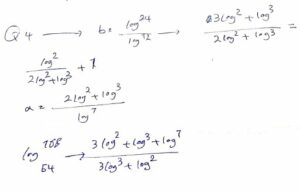 Q4 → b = log^24 / log^12 → 3log^2 + log^3 / 2log^2 + log^3 =
log^2 / 2log^2 + log^3 + 1
a = 2log^2 + log^3 / log^7
log 54 → 3log^2 + log^3 + log^7 / 3log^3 + log^2